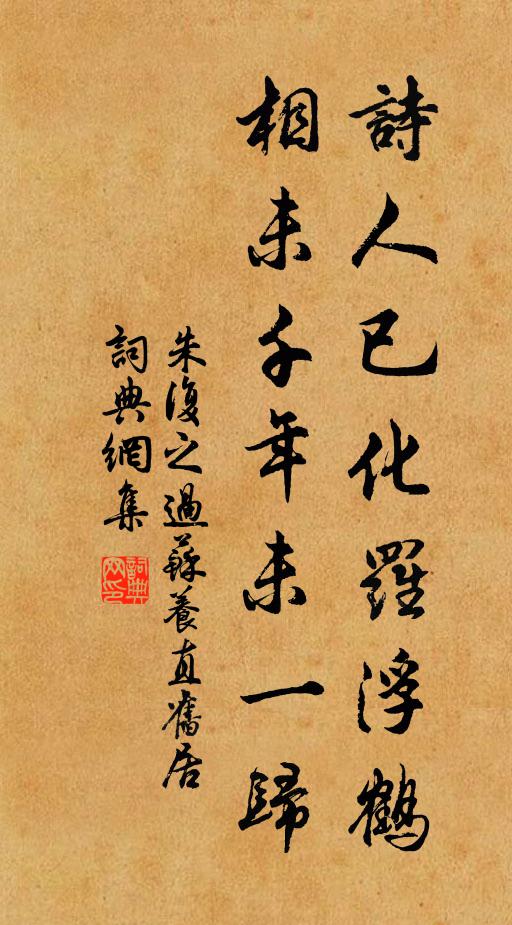 詩人已化羅浮鶴
相未千年未一歸
朱復之過蘇養直舊居
詞典網集
詞典网印